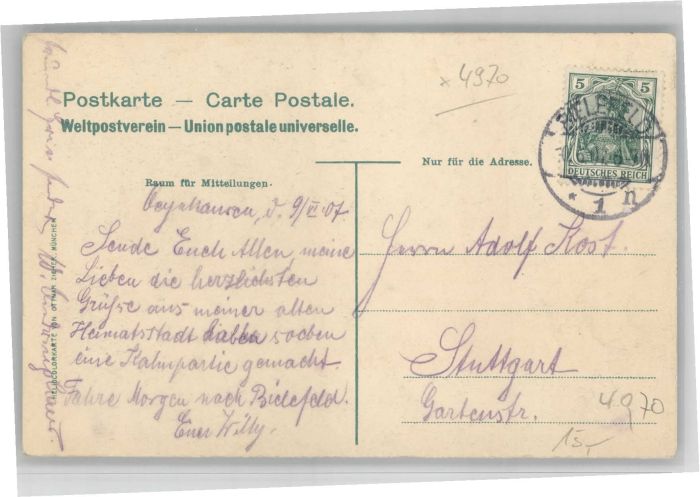 Postkarte — Carte Postale.
Weltpostverein — Union postale universelle.
Nur für die Adresse.
Raum für Mitteilungen.
x 4970
5 5
DEUTSCHES REICH
BIELEFELD
* 1 n
Oeynhausen, d. 9/VI 07
Sende Euch Allen, meine
Lieben die herzlichsten
Grüße aus meiner alten
Heimatsstadt haben soeben
eine Kahnpartie gemacht.
Fahre Morgen nach Bielefeld.
Euer Willy.
Herrn Adolf Kost.
Stuttgart
Gartenstr.
4970
15,-
HELIOCOLORKARTE VON OTTMAR ZIEHER, MÜNCHEN